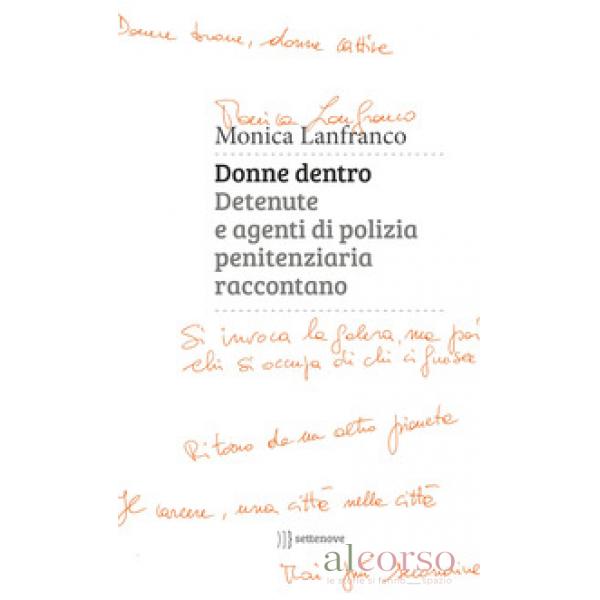 Donne buone, donne cattive
Monica Lanfranco
Monica Lanfranco
Donne dentro
Detenute
e agenti di polizia
penitenziaria
raccontano
Si invoca la galera, ma poi
chi si occupa di chi ci finisce
Ritorno da un altro pianeta
Il carcere, una città nella città
settenove
alcorso
le storie si fanno__spazio
Mai più secondine